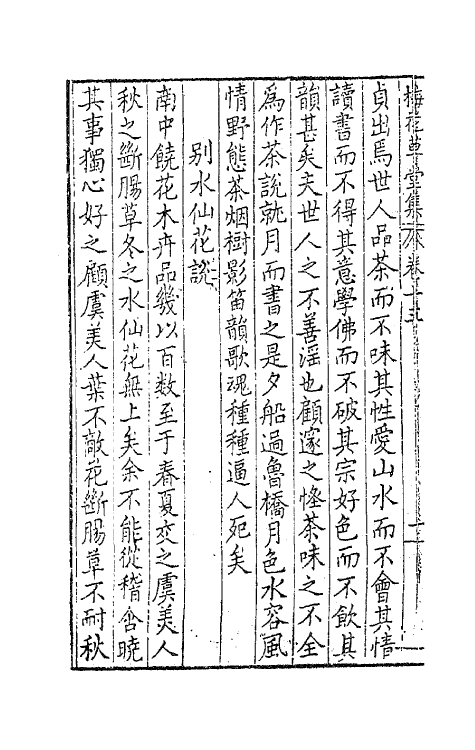 梅花草堂集 卷十五
貞出焉世人品茶而不味其性愛山水而不會其情
讀書而不得其意學佛而不破其宗好色而不飲其
韻甚矣夫世人之不善淫也顧邃之怪茶味之不全
爲作茶說就月而書之是夕船過魯橋月色水容風
情野態茶烟樹影笛韻歌魂種種逼人死矣
别水仙花説
南中饒花木卉品幾以百数至于春夏交之虞美人
秋之斷腸草冬之水仙花無上矣余不能從稽含曉
其事獨心好之顧虞美人葉不敵花斷腸草不耐秋